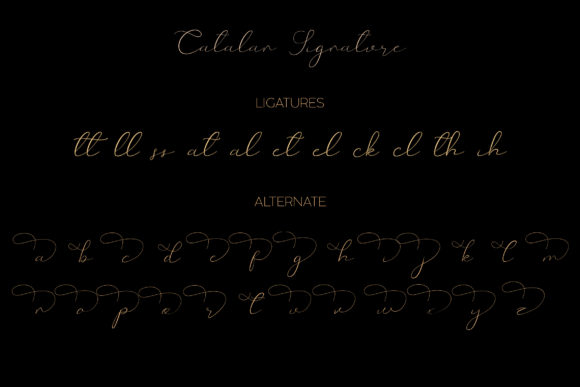 Catalan Signature
LIGATURES
tt ll ss at al et el ck cl th ih
ALTERNATE
a b c d e f g h i j k l m
n a p o r t u v w x y z